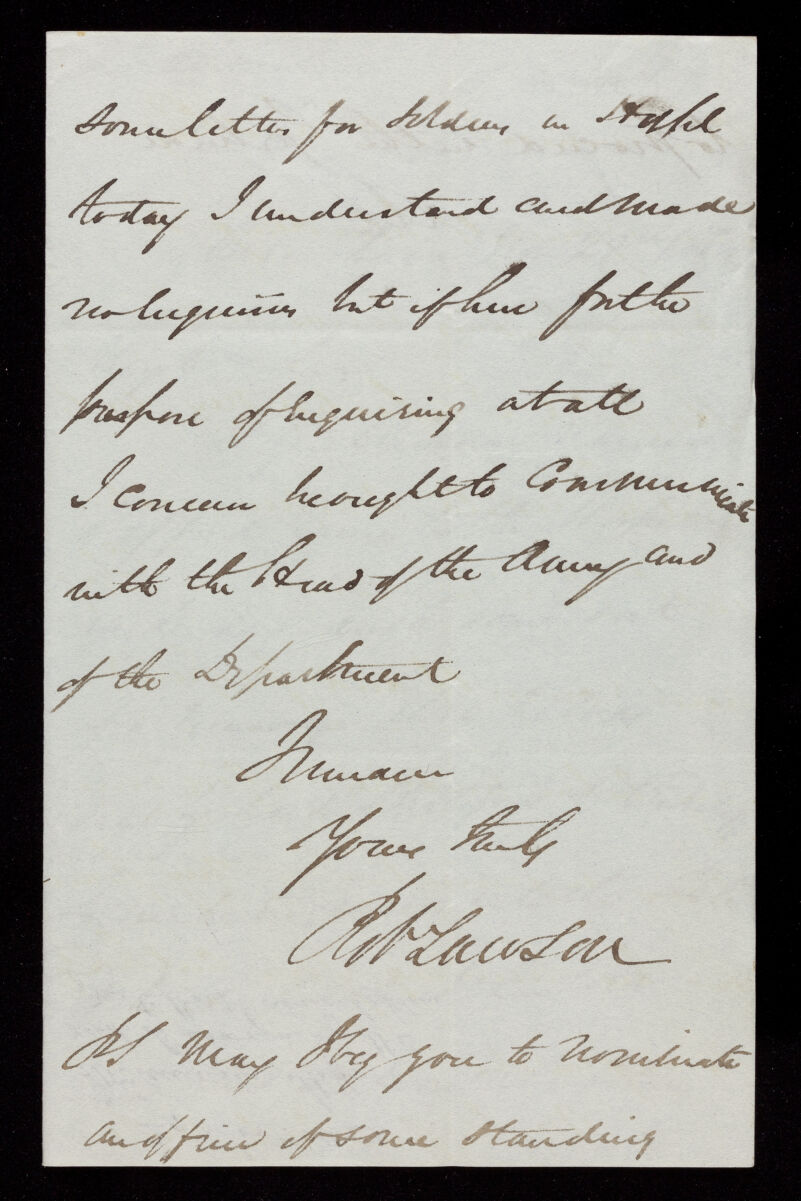 some letters for Soldiers in Hospl
today I understand and made
no Inquiries but if here for the
purpose of Inquiring at all
I conceive he ought to Communicate
with the Head of the Army and
of the Department
I remain
Yours truly
Robt Lawson
PS May I beg you to nominate
an officer of some standing